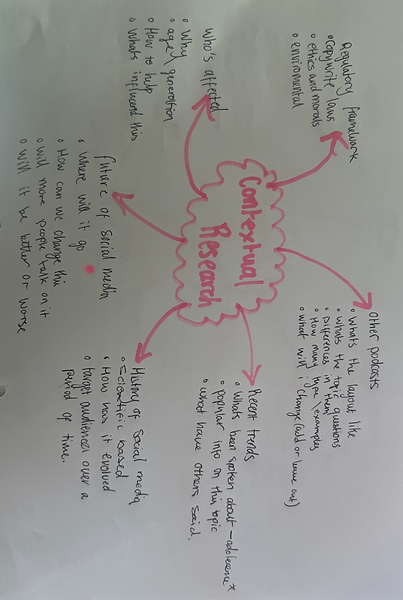 Contextual
Research
Regulatory framework
• Copywrite laws
• ethics and morals
• enviromental
Other podcasts
• Whats the layout like
• Whats the topic questions
• Differences in them
• How many type/examples
• what will i change (add or leave out)
Recent trends
• Whats been spoken about - adolescence *
• popular info on this topic
• what have others said.
History of Social media
• Scientific based
• How has it evolved
• target audiences over a
period of time.
future of social media
• Where will it go
• How can we change this
• will more people talk on it
• Will it be better or worse
Who's affected
• Why
• age/generation
• How to help
• Whats influencd this